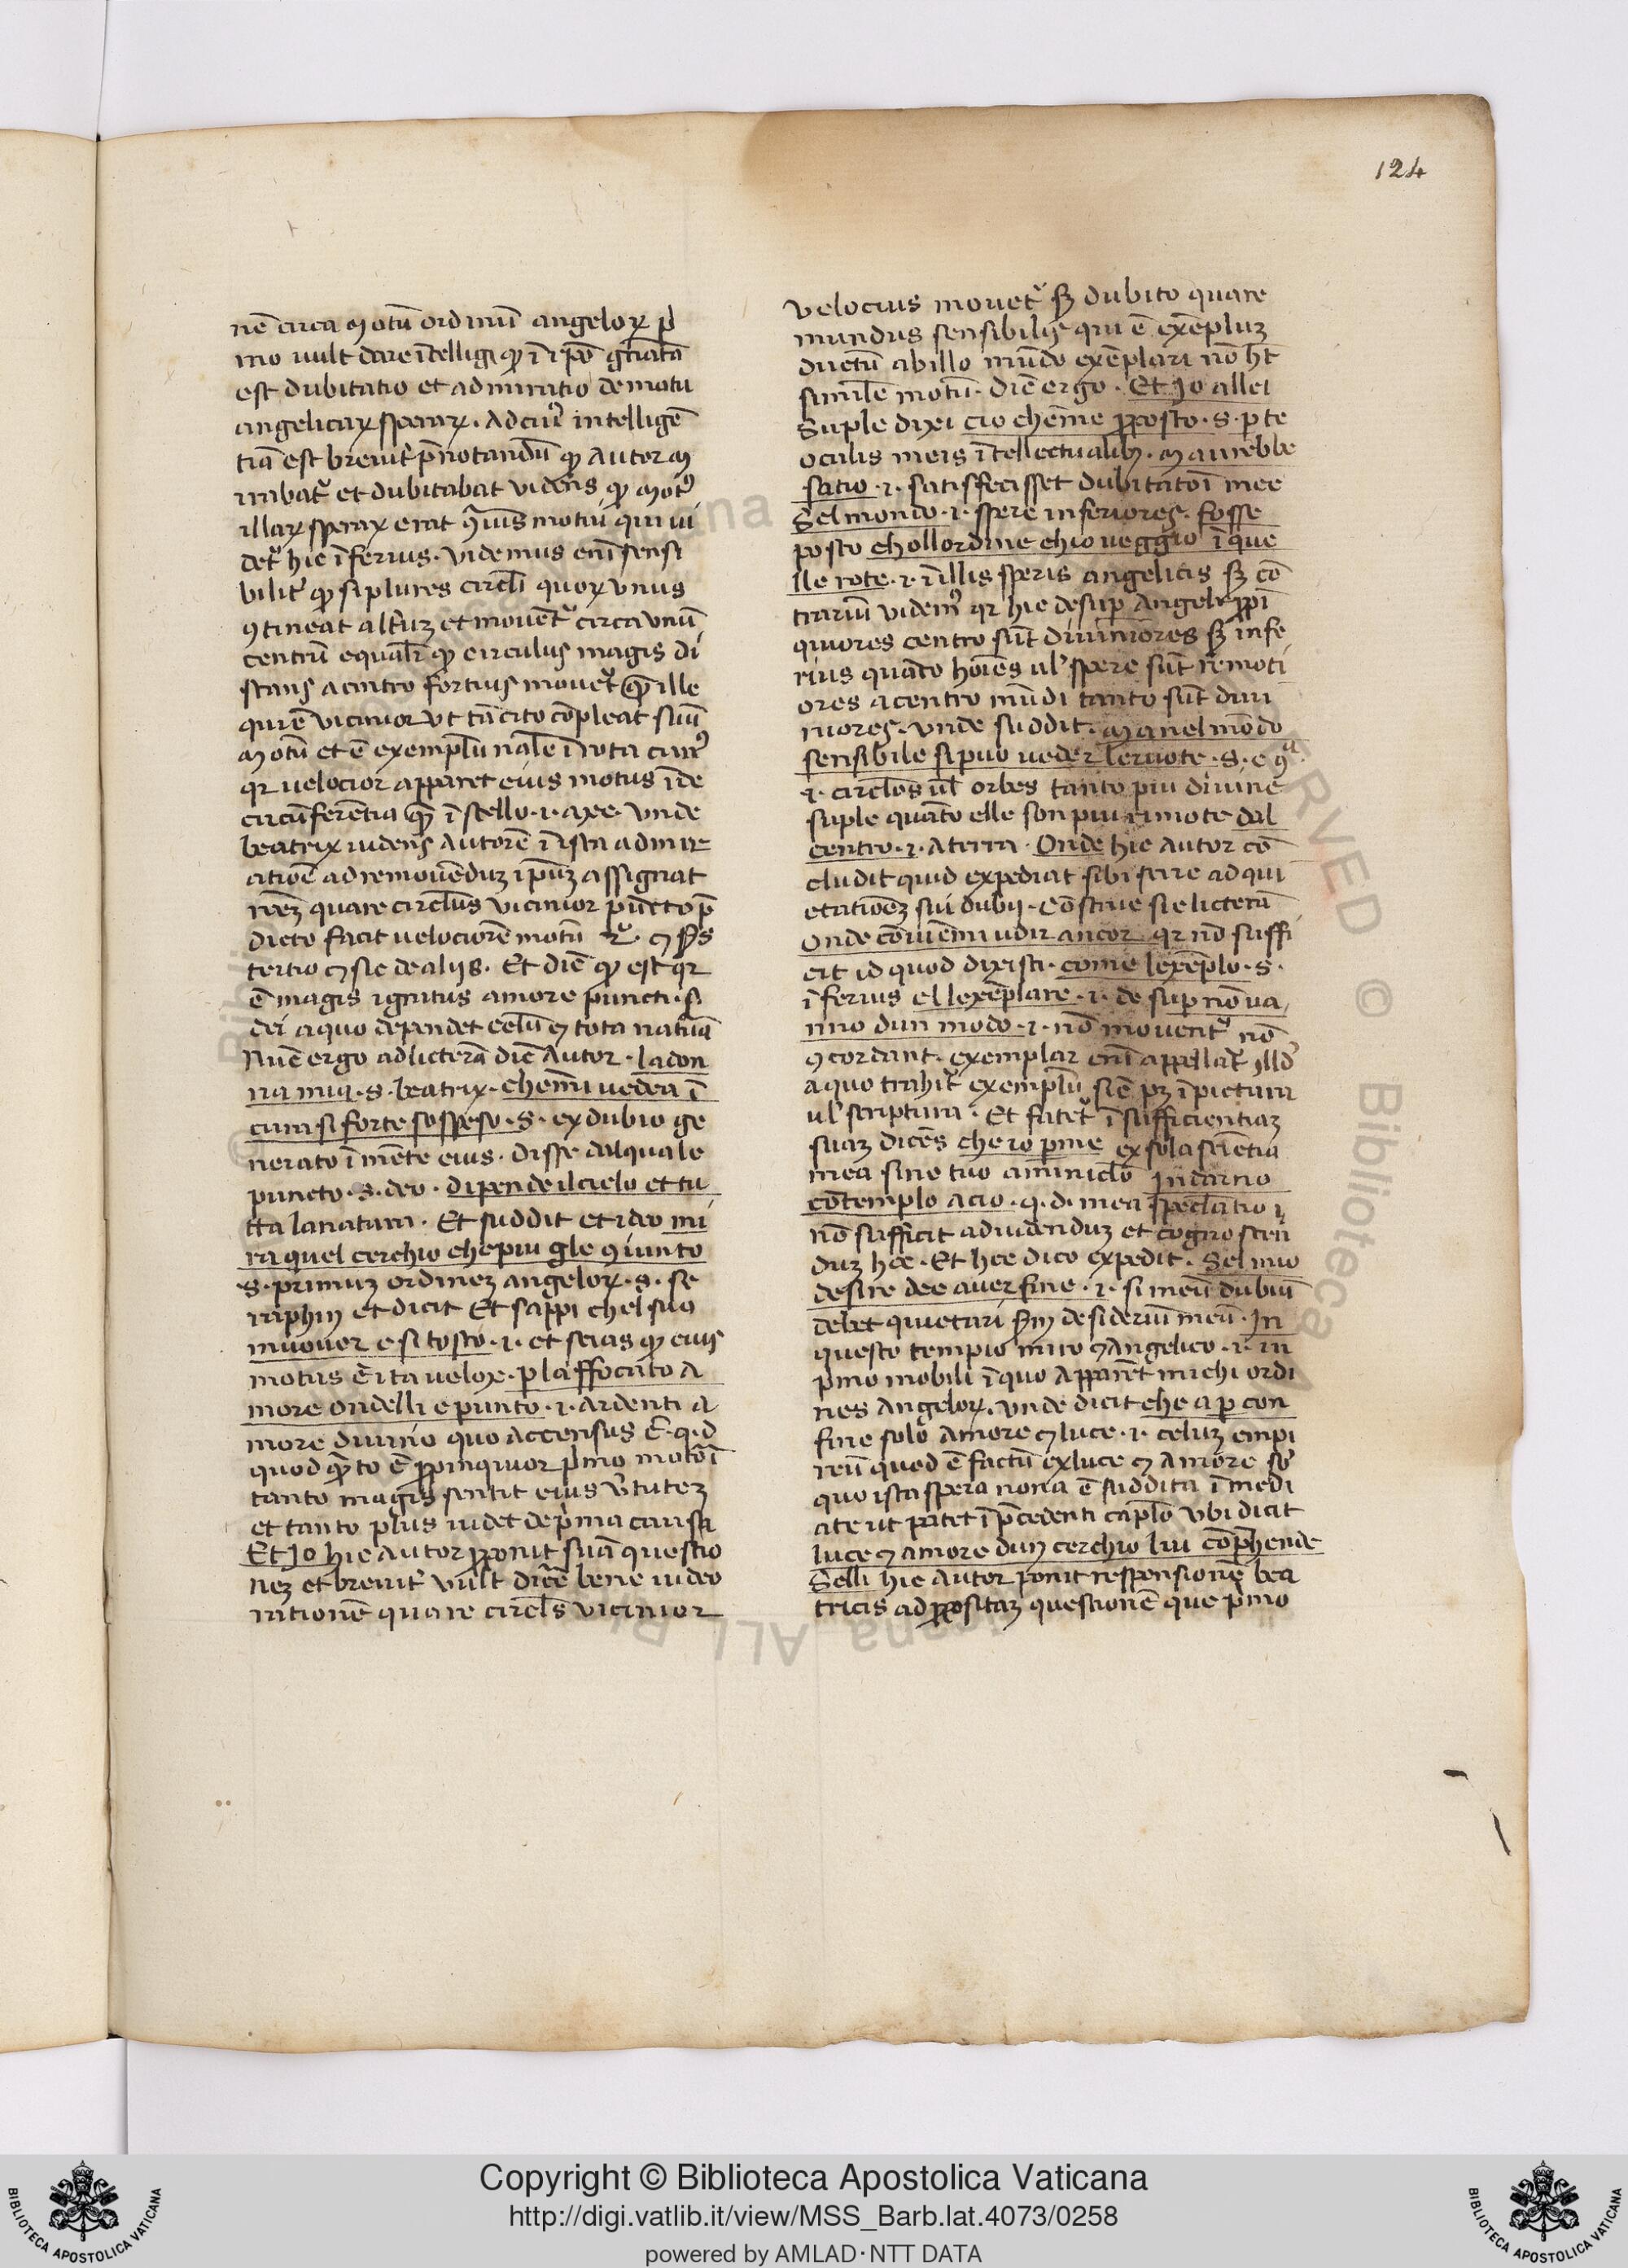 124
nē circa motū ordinū angeloꝝ p̄
mo uult dare ītelligi ꝙ ī ip̄o gn̄ata
est dubitatio et admiratio de motu
angelicaꝝ speraꝝ. Ad cuiꝰ intelligē
tiā est breuit̉ p̄notandū ꝙ Autor m
irabat̉ et dubitabat videns ꝙ motꝰ
illaꝝ speraꝝ erat ꝯ̄riꝰ motui qui ui
det̉ hic īferius. videmus enī sensi
bilit̉ ꝙ si plures circl̄i quoꝝ vnus
ꝯtineat alt̉uȝ et mouent̉ circa vnū
centrū equal̉r ꝙ circulus magis di
stans a centro fortius mouet̉ ꝙ̄ ille
qui ē vicinior vt tā cito cōpleat suū
motū et ē exemplū nal̄e ī rota currꝰ
qr uelocior apparet eius motus ī de
circūferētia ꝙ̄ ī stello .i. axe. vnde
beatrix uidens Autorē ī ista admir
ationē ad remouēduȝ ip̄uȝ assignat
rōeȝ quare circl̄us vicinior puncto p̄
dicto facit uelociorē motū
tertio ⁊ sic de aliis. Et diē ꝙ est qr
ē magis ignitus amore puncti .s.
dei a quo dependet celū ⁊ tota natura
Nūc ergo ad licterā diē Autor. la don
na mia .s. beatrix. che mi uedea ī
cura si forte sospeso .s. ex dubio ge
nerato ī mēte eius. disse dal quale
puncto .s. deo. dipende il cielo et tu
tta la natura. Et suddit et ideo mi
ra quel cerchio che piu gle ꝯiunto
.s. primuȝ ordineȝ angeloꝝ .s. se
raphin et dicit Et sappi chel suo
muouer e si tosto .i. et scias ꝙ eius
motus ē ita uelox. p laffocato a
more ondelli e punto .i. ardenti a
more diuino quo accensus ē .q.d.
quod ꝙ̄to ē ꝓpinquior p̄mo motori
tanto magis sentit eius v̉tuteȝ
et tanto plus uidet de p̄ma causa
Et Io hic Autor ꝓponit suā questio
neȝ et breuit̉ vult dic̄e bene uideo
rationē quare circl̄s vicinior
velocius mouet̉ sȝ dubito quare
mundus sensibilis qui ē exēpluȝ
ductū ab illo mūdo exēplari nō ht̄
similē motū. diē ergo. Et Io a llei
suple dixi cio cheme ꝓposto .s. p te
oculis meis ītellectualibȝ. m aurebbe
satio .i. satisfecisset dubitatōi mee
Sel mondo .i. spere inferiores. fosse
posto chollordine chio ueggio ī que
lle rote .i. ī illis speris angelicis sȝ cō
trariū videmꝰ qr hic desup̄ Angeli ꝓpī
quiores centro sūt diuiniores sȝ infe
rius quāto hoīes ul̉ spere sūt remoti
ores a centro mūdi tanto sūt diui
niores. vnde suddit. ma nel mōdo
sensibile si puo ueder le ruote .s. e ꝯͣ
.i. circl̄os ul̄ orbes tanto piu diuine
suple quāto elle son piu rimote dal
centro .i. a terra. Onde hic Autor cō
cludit quid expediat sibi scire ad qui
etationēȝ sui dubij. Cōstrue sic licterā
Onde cōuiēmi udir ancor qr nō suffi
cit id quod dixisti. come lexēplo .s.
īferius e llexēplare .i. de sup̄ nō ua,
nno dun modo .i. nō mouent̉ nō
ꝯcordant. exemplar enī appellat̉ illd̄
a quo trahit̉ exemplū sic pȝ ī pictura
ul̉ scriptura. Et fatet̉ īsufficientiaȝ
suaȝ dicēs che io p me ex sola sciētia
mea sine tuo aminiclo Indarno
cōtemplo a cio .q.d. mea specl̄atio
nō sufficit ad uidenduȝ et cognoscen
duȝ hec. Et hec dico expedit. Sel mio
desire dee auer fine .i. si meū dubiū
debet quietari s̄m desideriū meū. In
questo tempio miro ⁊ Angelico .i. in
p̄mo mobili ī quo apparēt michi ordi
nes Angeloꝝ. vnde dicit che a p con
fine solo Amore ⁊ luce .i. celuȝ empi
reū quod ē factū ex luce ⁊ Amore s̄b
quo ista spera nona ē suddita īmedi
ate ut patet ī p̄cedenti capl̄o vbi dicit
luce ⁊ amore dun cerchio lui cōp̄hende
Selli hic Autor ponit responsionē bea
tricis ad ꝓpositaȝ questionē que p̄mo
Copyright © Biblioteca Apostolica Vaticana
http://digi.vatlib.it/view/MSS_Barb.lat.4073/0258
powered by AMLAD·NTT DATA
BIBLIOTECA APOSTOLICA VATICANA
BIBLIOTECA APOSTOLICA VATICANA